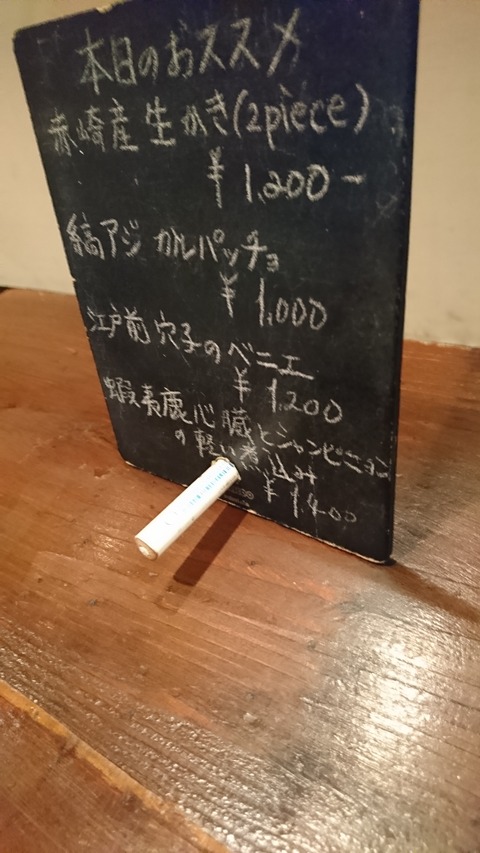 本日のおススメ
赤崎産 生かき(2piece)
¥1,200-
縞アジ カルパッチョ
¥1,000
江戸前 穴子のベニエ
¥1,200
蝦夷鹿心臓とシャンピニョン
の軽い煮込み
¥1,400